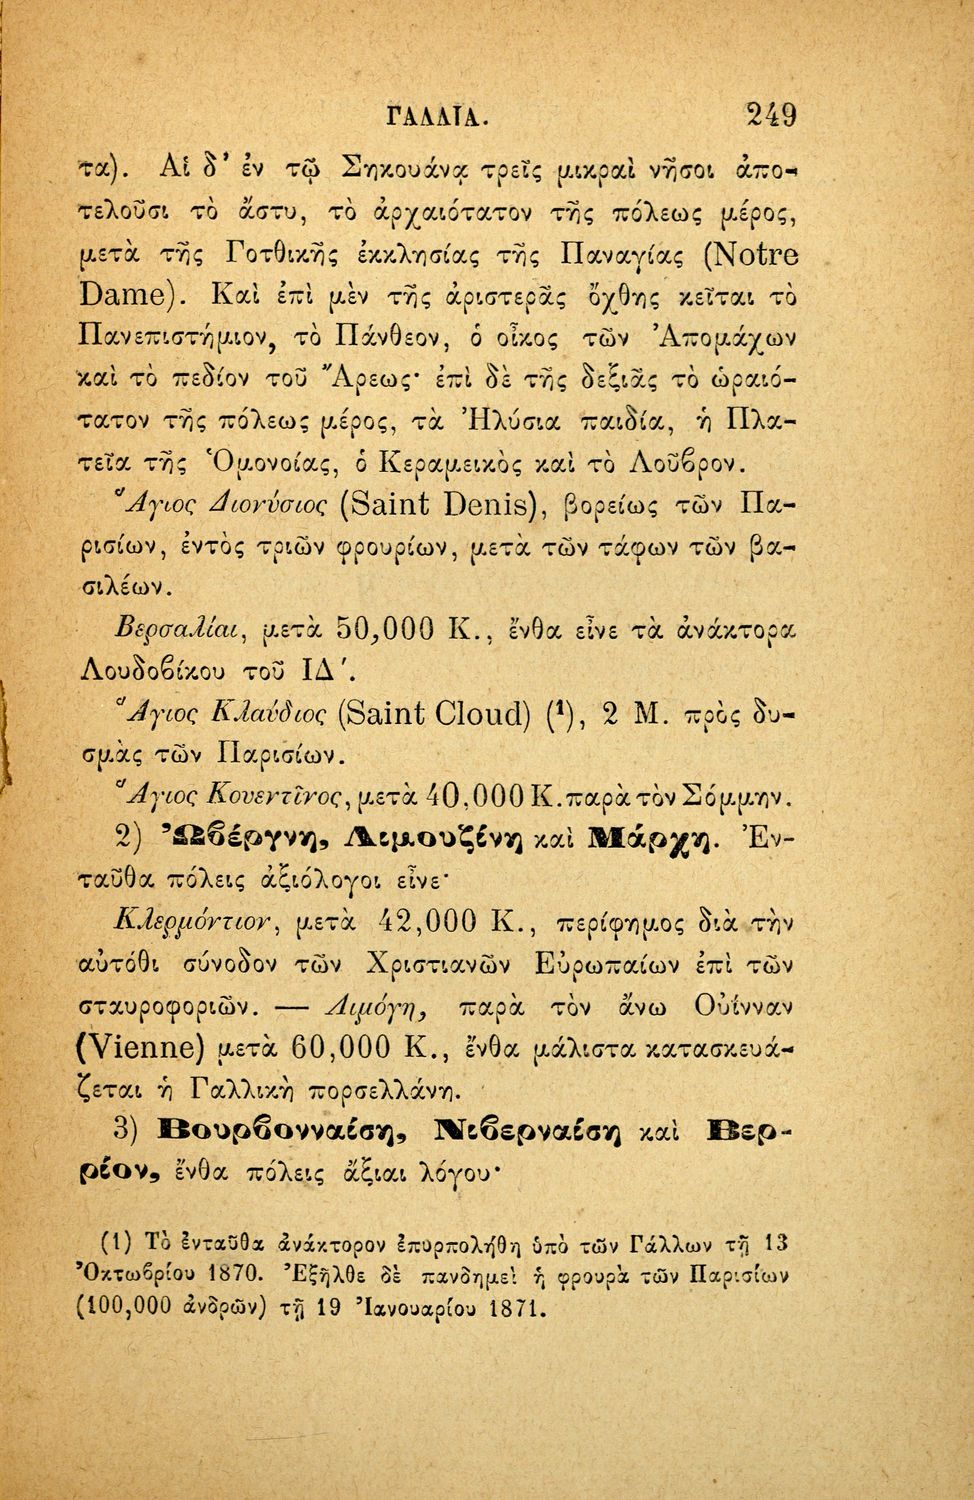 ΓΑΛΛΙΑ. 249
τα). Αἱ δ' ἐν τῷ Σηκουάνᾳ τρεῖς μικραὶ νῆσοι ἀπο-
τελοῦσι τὸ ἄστυ, τὸ ἀρχαιότατον τῆς πόλεως μέρος,
μετὰ τῆς Γοτθικῆς ἐκκλησίας τῆς Παναγίας (Notre
Dame). Καὶ ἐπὶ μὲν τῆς ἀριστερᾶς ὄχθης κεῖται τὸ
Πανεπιστήμιον, τὸ Πάνθεον, ὁ οἶκος τῶν Ἀπομάχων
καὶ τὸ πεδίον τοῦ Ἄρεως· ἐπὶ δὲ τῆς δεξιᾶς τὸ ὡραιό-
τατον τῆς πόλεως μέρος, τὰ Ἠλύσια παιδία, ἡ Πλα-
τεῖα τῆς Ὁμονοίας, ὁ Κεραμεικὸς καὶ τὸ Λοῦβρον.
Ἅγιος Διονύσιος (Saint Denis), βορείως τῶν Πα-
ρισίων, ἐντὸς τριῶν φρουρίων, μετὰ τῶν τάφων τῶν βα-
σιλέων.
Βερσαλίαι, μετὰ 50,000 Κ., ἔνθα εἶνε τὰ ἀνάκτορα
Λουδοβίκου τοῦ ΙΔ΄.
Ἅγιος Κλαύδιος (Saint Cloud) (¹), 2 Μ. πρὸς δυ-
σμὰς τῶν Παρισίων.
Ἅγιος Κουεντῖνος, μετὰ 40,000 Κ. παρὰ τὸν Σόμμην.
2) Ὠβέργνη, Λιμουζένη καὶ Μάρχη. Ἐν-
ταῦθα πόλεις ἀξιόλογοι εἶνε·
Κλερμόντιον, μετὰ 42,000 Κ., περίφημος διὰ τὴν
αὐτόθι σύνοδον τῶν Χριστιανῶν Εὐρωπαίων ἐπὶ τῶν
σταυροφοριῶν. — Λιμόγη, παρὰ τὸν ἄνω Οὐίνναν
(Vienne) μετὰ 60,000 Κ., ἔνθα μάλιστα κατασκευά-
ζεται ἡ Γαλλικὴ πορσελλάνη.
3) Βουρβονναίση, Νιβερναίση καὶ Βερ-
ρίον, ἔνθα πόλεις ἄξιαι λόγου·
(1) Τὸ ἐνταῦθα ἀνάκτορον ἐπυρπολήθη ὑπὸ τῶν Γάλλων τῇ 13
Ὀκτωβρίου 1870. Ἐξῆλθε δὲ πανδημεὶ ἡ φρουρὰ τῶν Παρισίων
(100,000 ἀνδρῶν) τῇ 19 Ἰανουαρίου 1871.